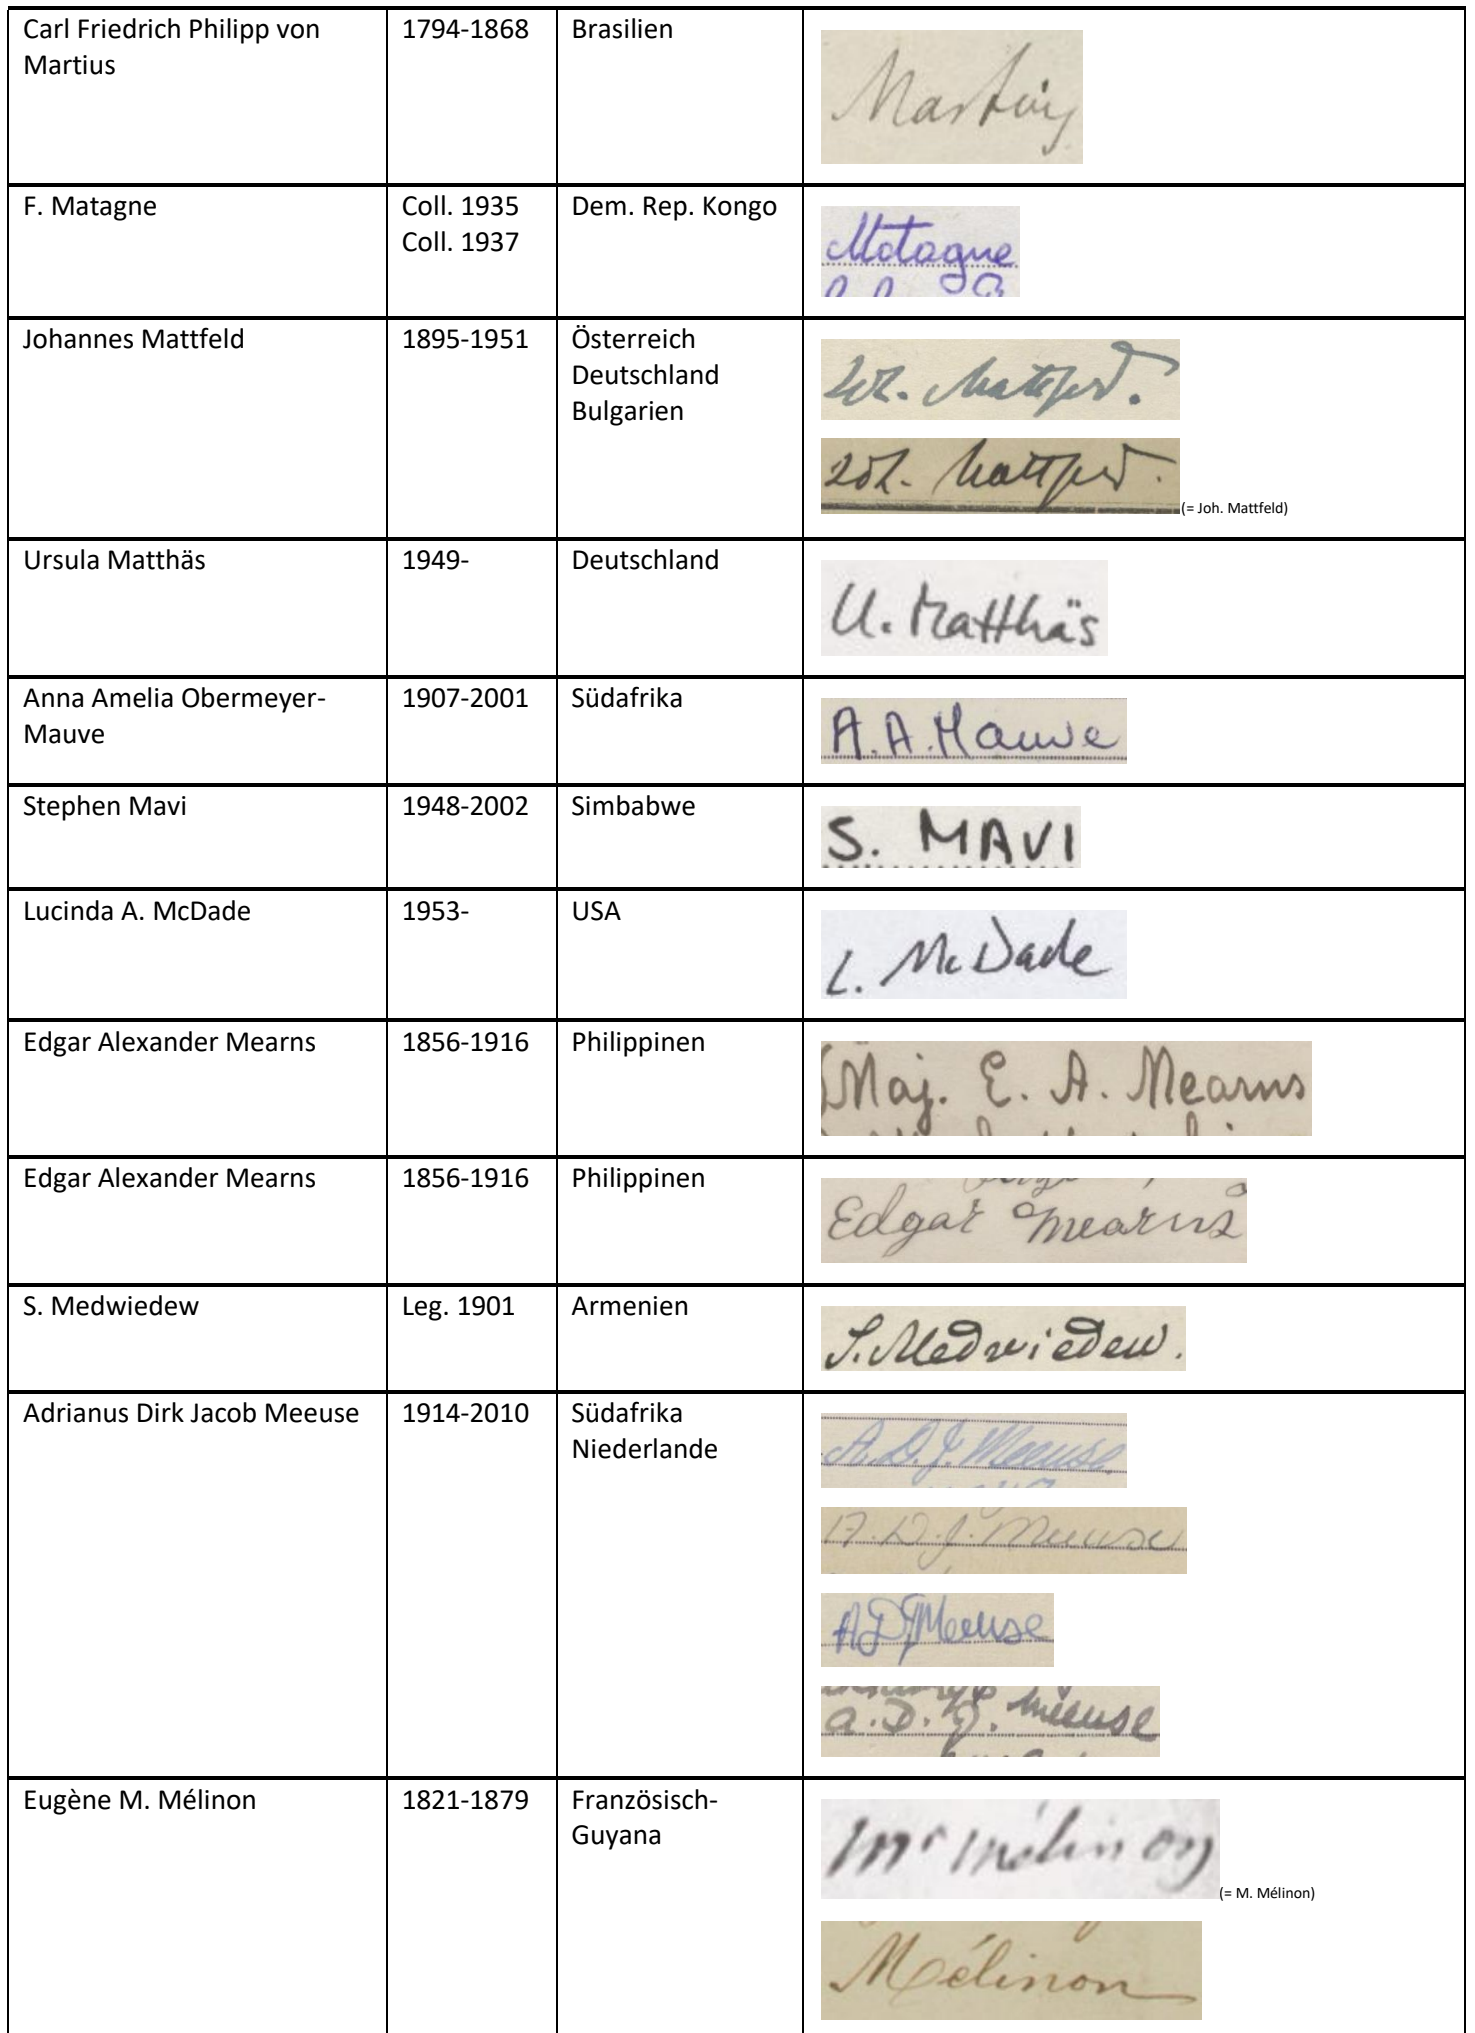 Carl Friedrich Philipp von
Martius
1794-1868
Brasilien
Martius
F. Matagne
Coll. 1935
Coll. 1937
Dem. Rep. Kongo
Matagne
Johannes Mattfeld
1895-1951
Österreich
Deutschland
Bulgarien
Joh. Mattfeld.
Joh. Mattfeld.
(= Joh. Mattfeld)
Ursula Matthäs
1949-
Deutschland
U. Matthäs
Anna Amelia Obermeyer-
Mauve
1907-2001
Südafrika
A.A. Mauve
Stephen Mavi
1948-2002
Simbabwe
S. MAVI
Lucinda A. McDade
1953-
USA
L. McDade
Edgar Alexander Mearns
1856-1916
Philippinen
Maj. E. A. Mearns
Edgar Alexander Mearns
1856-1916
Philippinen
Edgar Mearns
S. Medwiedew
Leg. 1901
Armenien
S. Medwiedew.
Adrianus Dirk Jacob Meeuse
1914-2010
Südafrika
Niederlande
A.D.J. Meeuse
A.D.J. Meeuse
ADJMeeuse
a.D.J. Meeuse
Eugène M. Mélinon
1821-1879
Französisch-
Guyana
Mr Mélinon
(= M. Mélinon)
Mélinon